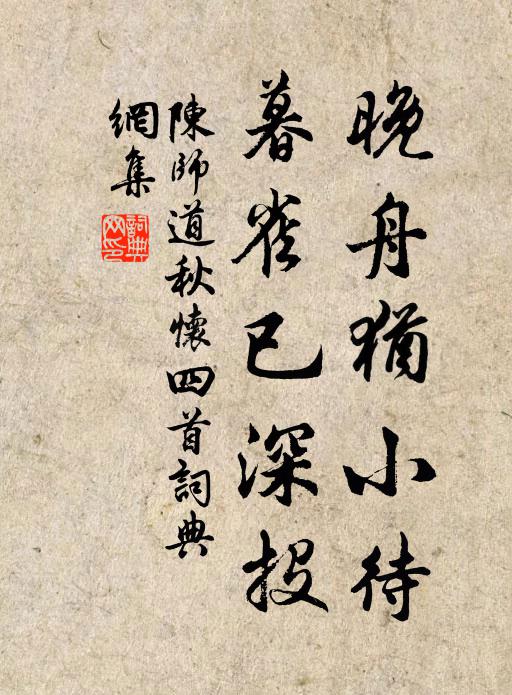 晚舟猶小待
暮雀已深投
陳師道秋懷四首詞典
網集
詞典
网印